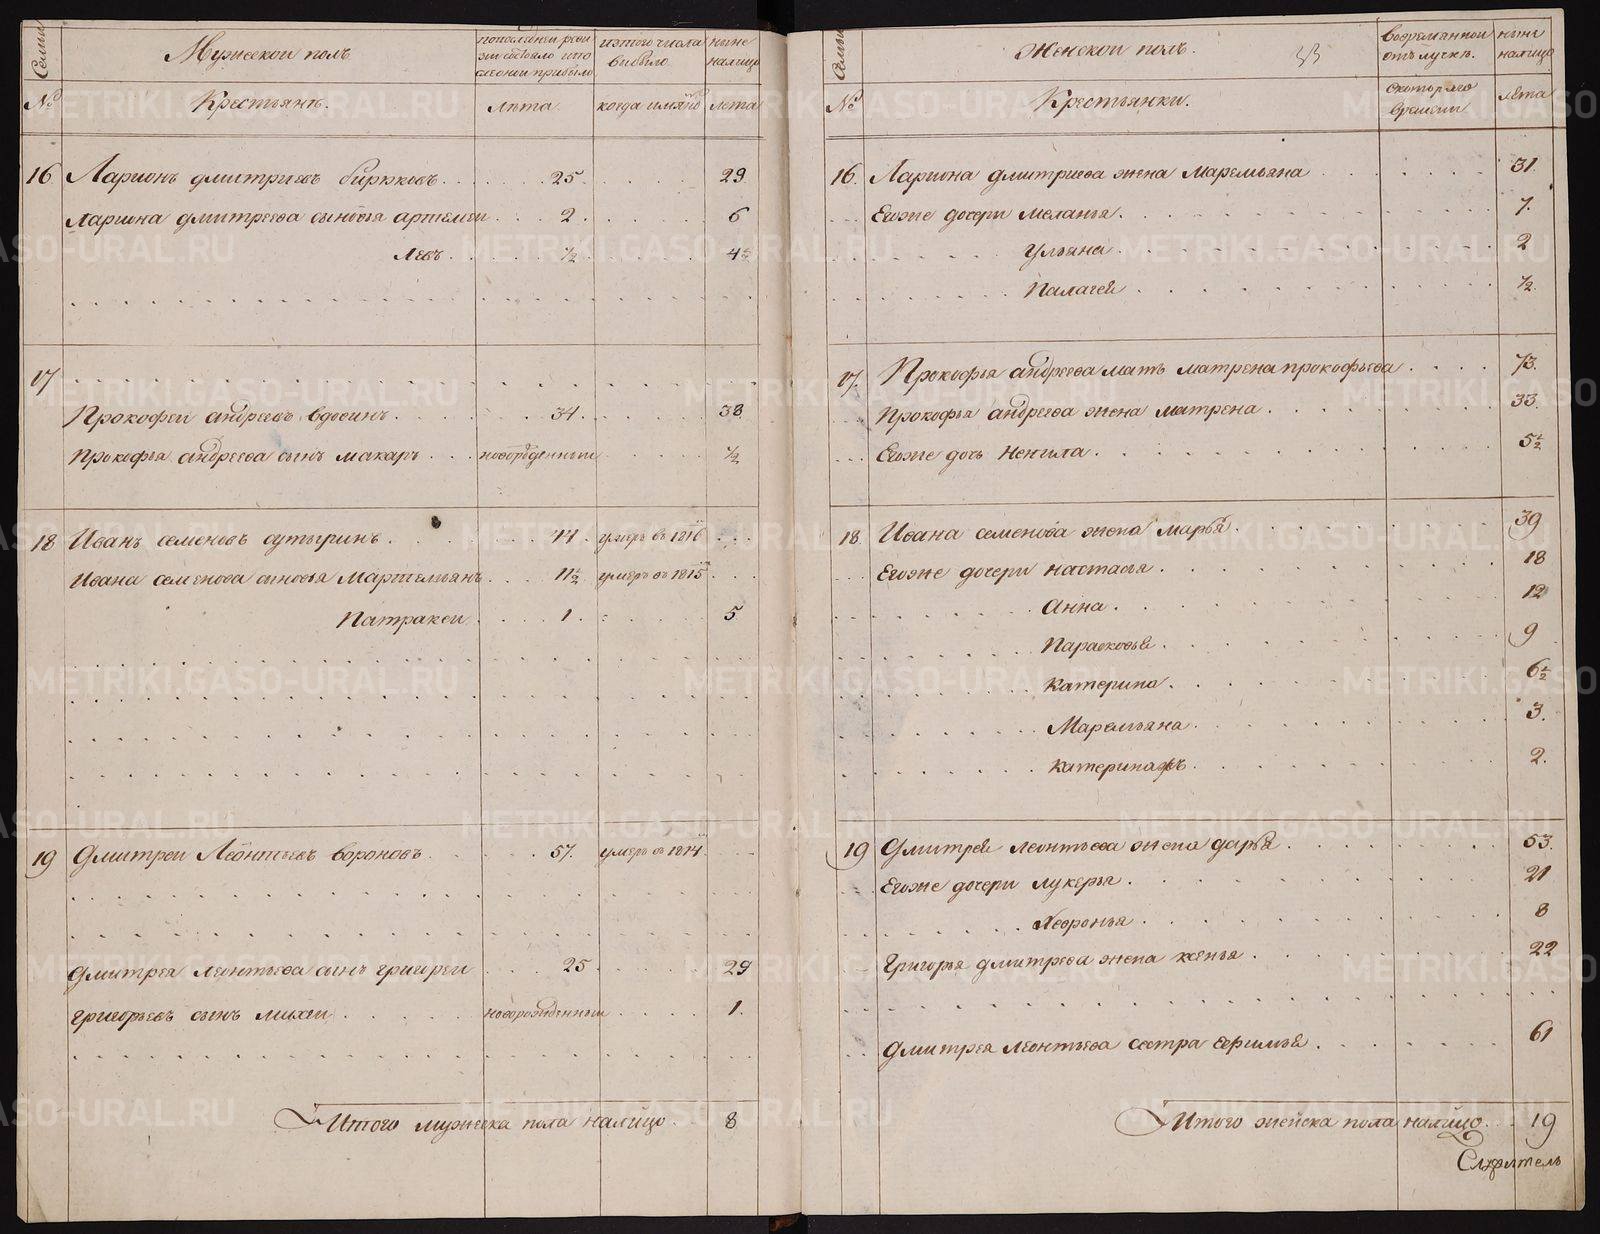 Семьи
Мужескои полъ
попоследнеи реви
зии состояло ипо
слеонои прибыло
изтого числа
выбыло
ныне
налицо
№
Крестьянъ.
лѣта
когда имянно
лѣта
16 Ларионъ дмитриевъ бирюковъ 25 29
Лариона дмитреева сыновья артемеи 2 6
левъ 1/2 4 1/2
17
Прокофеи андреевъ вдовинъ 34 38
Прокофья андреева сынъ макаръ новорожденныи 1/2
18 Иванъ семеновъ сутыринъ 44 умеръ въ 1816
Ивана семенова сыновья Мартемьянъ 11 1/2 умеръ въ 1815
Патракеи 1 5
19 Дмитреи Леонтьевъ вороновъ 57 умеръ въ 1814
Дмитрея леонтьева сынъ григореи 25 29
григорьевъ сынъ михеи новорожденныи 1
Итого мужеска пола налицо 8
Семьи
Женскои полъ.
вовременнои
отълучкѣ.
ныне
налицо
№
Крестьянки.
скоторого
времени
лѣта
16 Лариона дмитриева жена маремьяна 31
Егоже дочери меланья 7
Ульяна 2
Палагея 1/2
17 Прокофья андреева мать матрена прокофьева 73
Прокофья андреева жена матрена 33
Егоже дочь Ненила 5 1/2
18 Ивана семенова жена марья 39
Егоже дочери настасья 18
Анна 12
Парасковья 9
Катерина 6 1/2
Маремьяна 3
Катерина жъ 2
19 Дмитрея леонтьева жена дарья 53
Егоже дочери лукерья 21
Февронья 8
Григорья дмитрева жена ксенья 22
Дмитрея леонтьева сестра ефимья 61
Итого женска пола налицо 19
METRIKI.GASO-URAL.RU